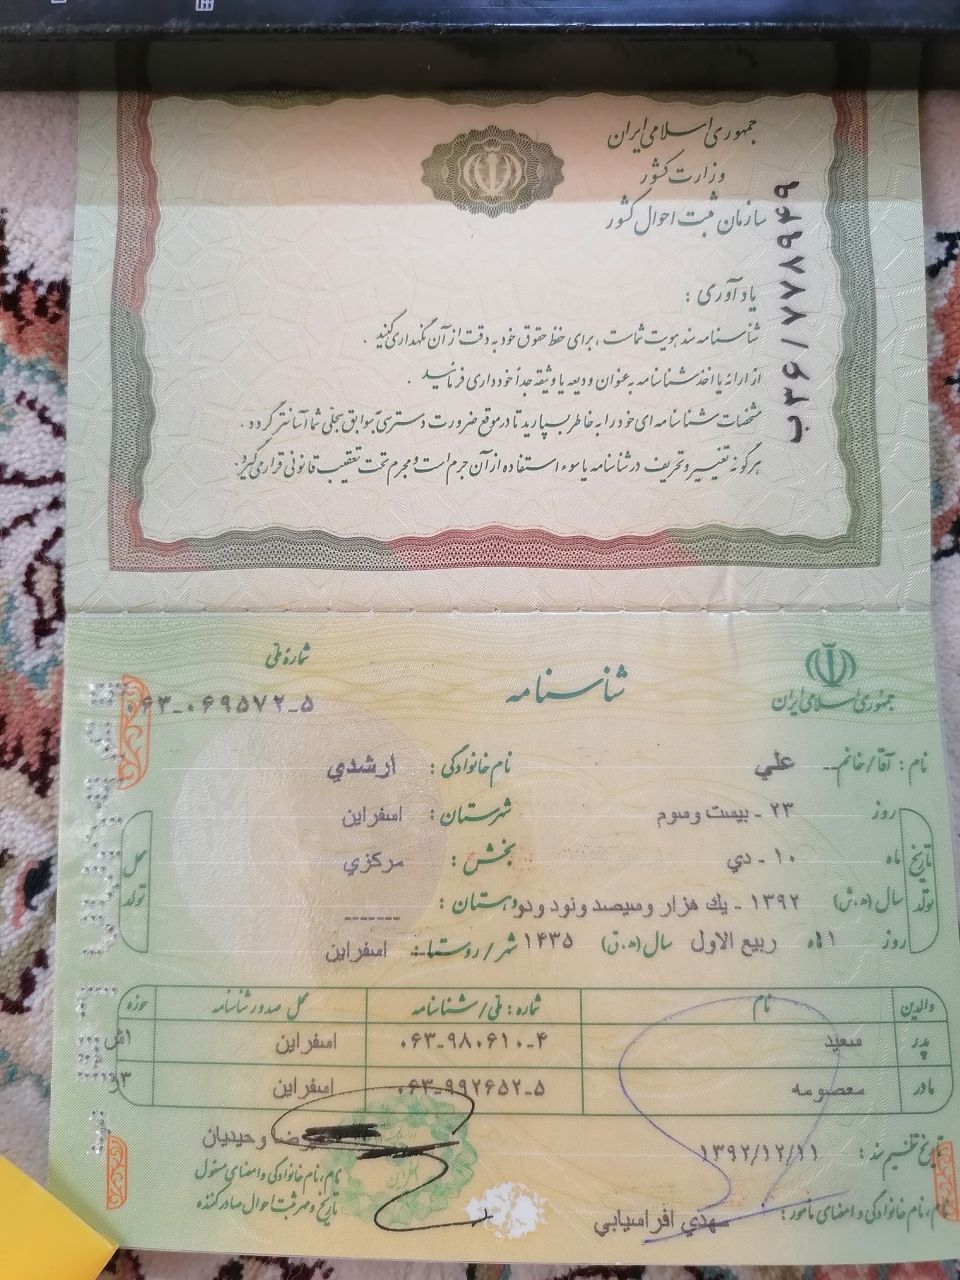 جمهوری اسلامی ایران
وزارت کشور
سازمان ثبت احوال کشور
ب۳۶/۷۷۸۹۴۹
یادآوری :
شناسنامه سند هویت شماست ، برای حفظ حقوق خود به دقت از آن نگهداری کنید .
از ارائه یا اخذ شناسنامه به عنوان ودیعه یا وثیقه جداً خودداری فرمائید .
مشخصات شناسنامه ای خود را به خاطر بسپارید تا در موقع ضرورت دسترسی به سوابق سجلی شما آسانتر گردد .
هرگونه تغییر و تحریف در شناسنامه یا سوء استفاده از آن جرم است و مجرم تحت تعقیب قانونی قرار می گیرد.
جمهوری اسلامی ایران
شناسنامه
شمارهٔ ملی
۰۶۳-۰۶۹۵۷۲-۵
نام : آقا/خانم علي نام خانوادگی : ارشدي
تاریخ تولد
روز ۲۳ - بيست وسوم شهرستان : اسفراين
ماه ۱۰ - دي بخش : مرکزي
سال (ه.ش) ۱۳۹۲ - يك هزار وسيصد ونود ودو دهستان : -------
روز ۱۱ ماه ربيع الاول سال (ه.ق) ۱۴۳۵ شهر/روستا : اسفراين
محل تولد
والدین نام شماره : ملی/شناسنامه محل صدور شناسنامه حوزه
پدر سعيد ۰۶۳-۹۸۰۶۱۰-۴ اسفراين
مادر معصومه ۰۶۳-۹۹۲۶۵۲-۵ اسفراين
تاریخ تنظیم سند : ۱۳۹۲/۱۲/۱۱
وحيديان
نام، نام خانوادگی و امضای مأمور : مهدي افراسيابي
نام، نام خانوادگی و امضای مسئول
تاریخ و مهر ثبت احوال صادر کننده